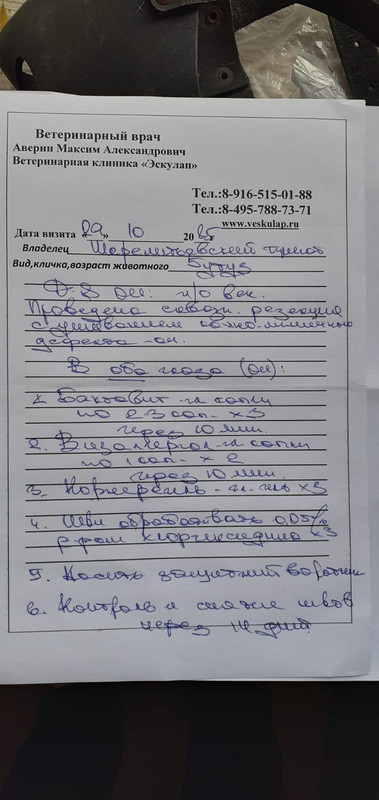 Ветеринарный врач
Аверин Максим Александрович
Ветеринарная клиника «Эскулап»
Тел.:8-916-515-01-88
Тел.:8-495-788-73-71
www.veskulap.ru
Дата визита «29» 10 2025г
Владелец Шереметьевский приют
Вид,кличка,возраст животного Бутуз
Д-з OU: п/о век.
Проведена сквозн. резекция
с ушиванием кожно-мышечного
дефекта -ou.
В оба глаза (OU):
1. Бактовит -гл капли
по 2-3 кап - х3
через 10 мин.
2. Визаллергол -гл капли
по 1 кап - х 2
через 10 мин.
3. Корнерегель - гл-гель х3
4. Швы обрабатывать 0,05%
р-ром хлоргексидина х3
5. Носить защитный воротник
6. Контроль и снятие швов
через 14 дней